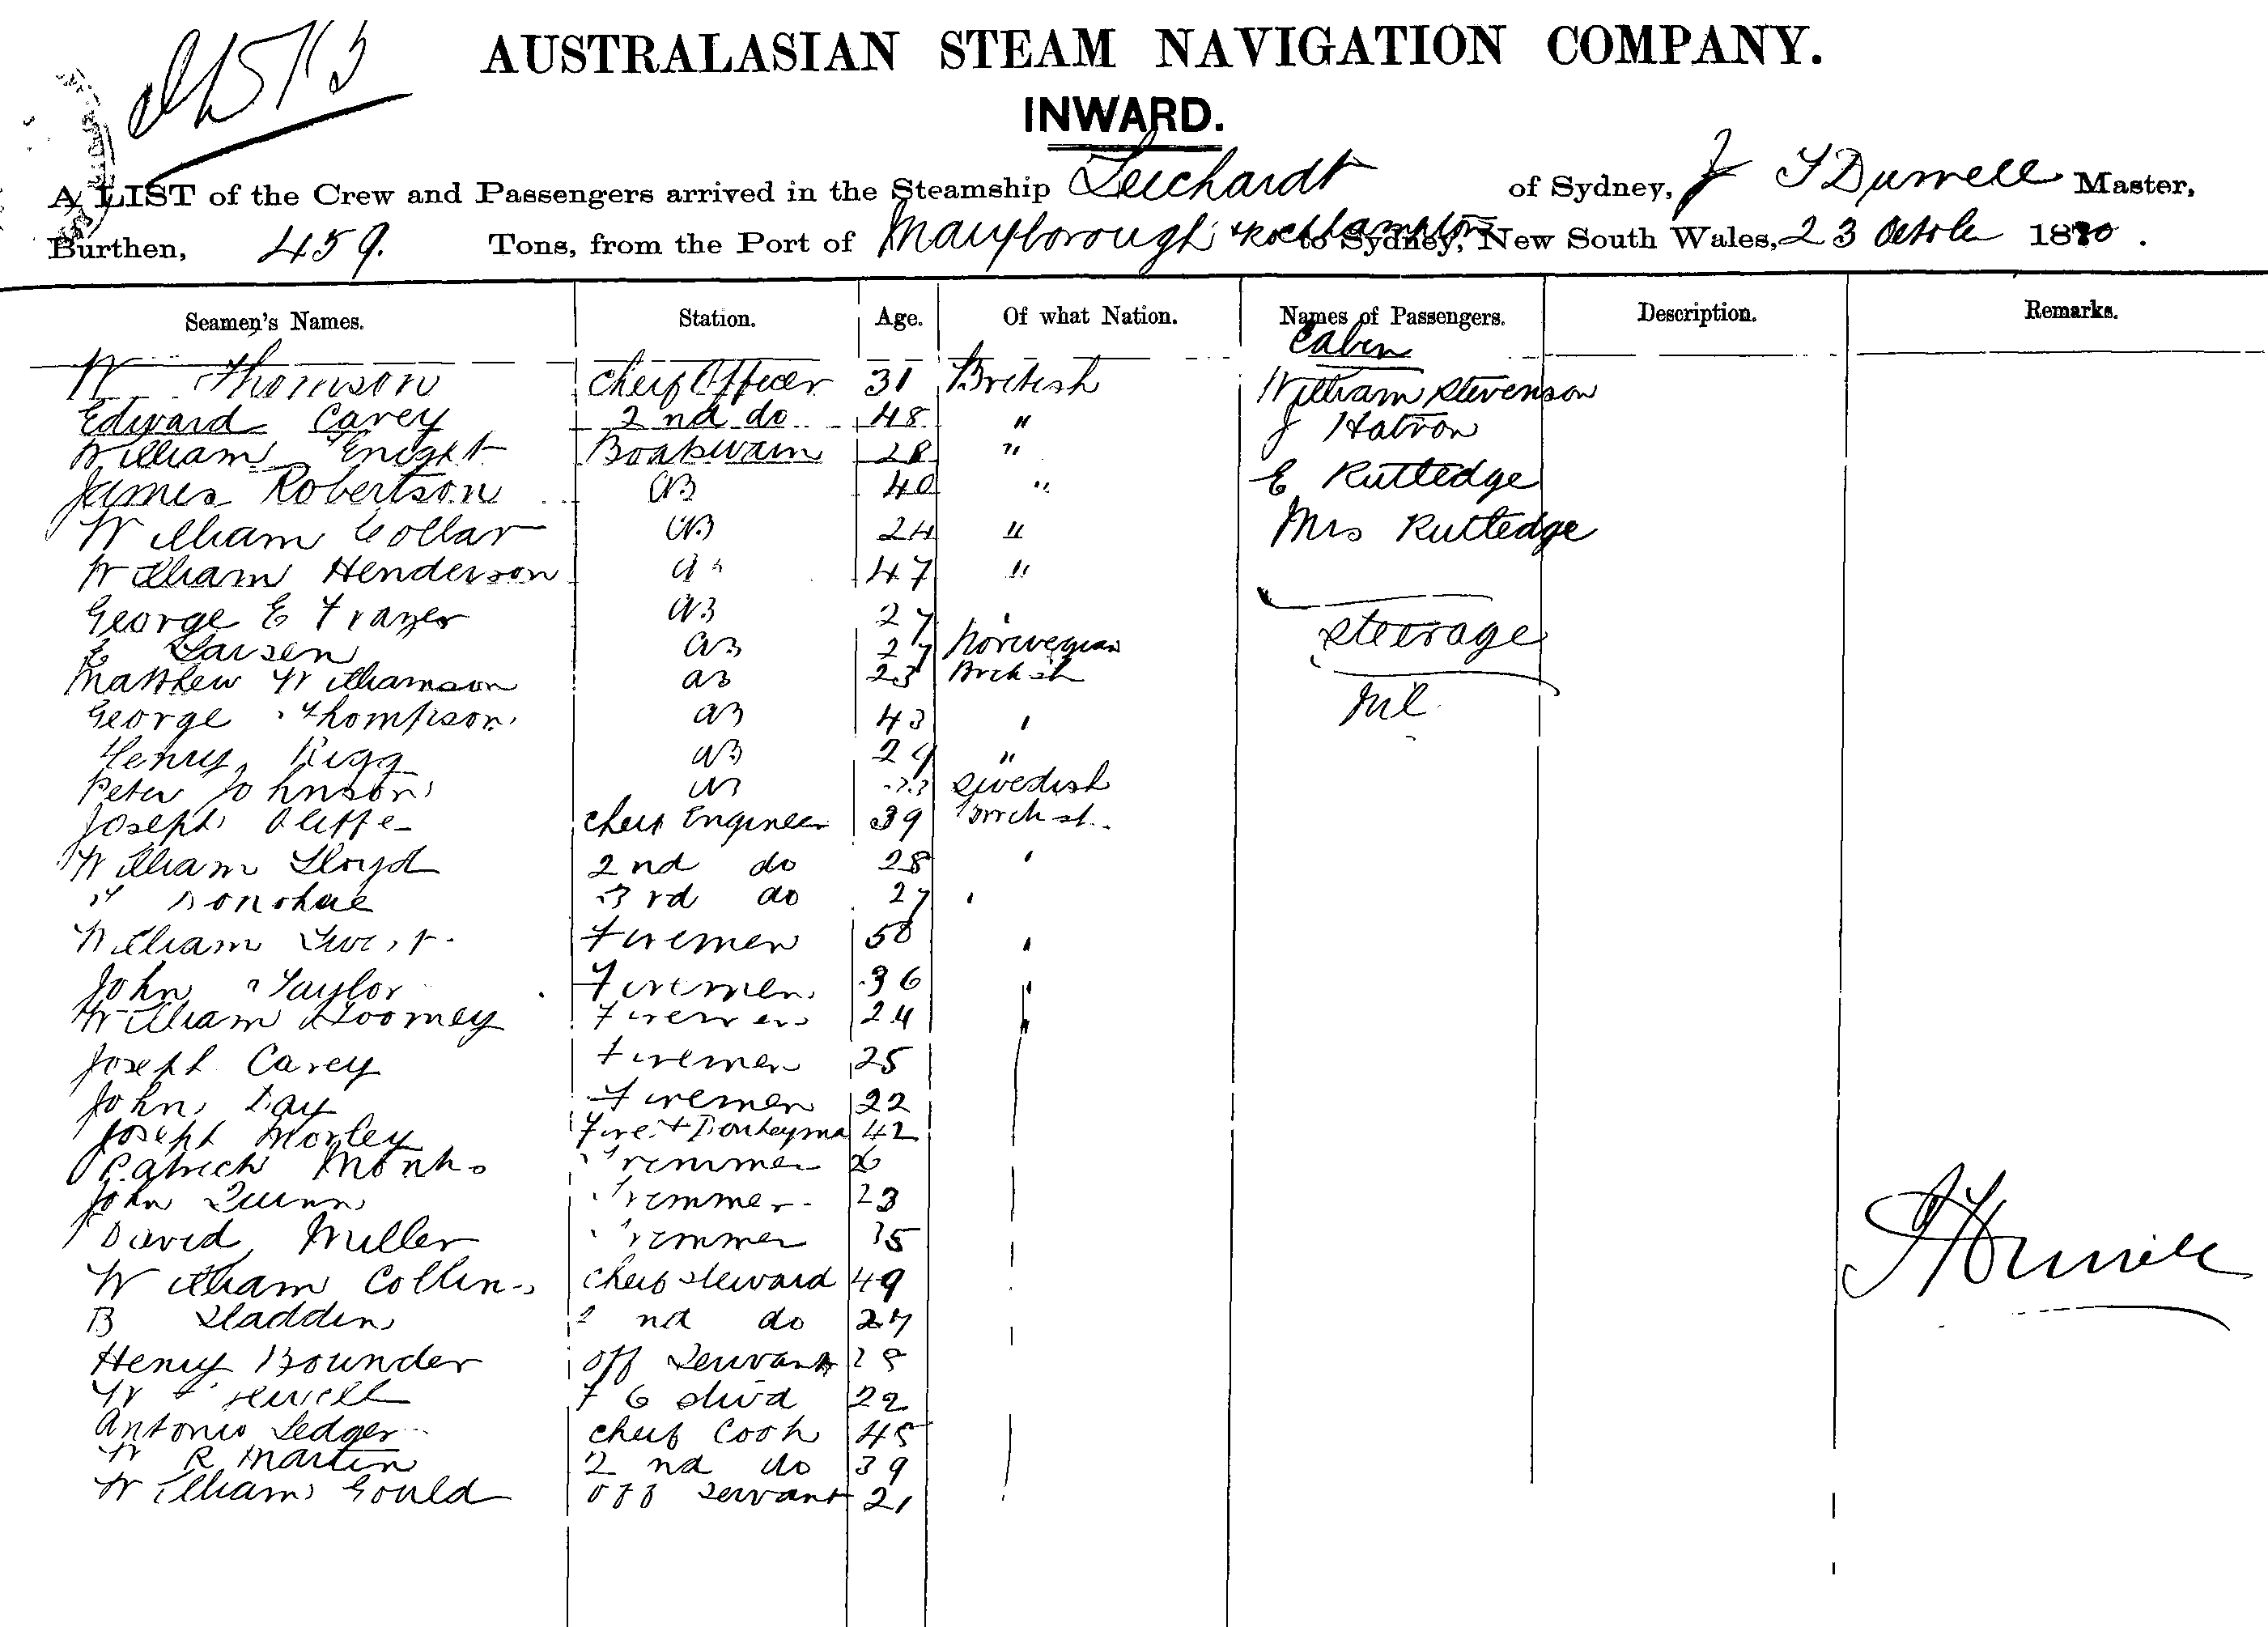 AUSTRALASIAN STEAM NAVIGATION COMPANY.
INWARD.
A LIST of the Crew and Passengers arrived in the Steamship Leichardt of Sydney, Master,
Burthen, 459. Tons, from the Port of Maryborough & Rockhampton to Sydney, New South Wales, 23 October 1880.
Seamen's Names. Station. Age. Of what Nation. Names of Passengers. Description. Remarks.
Cabin
W Thomson Cheif Officer 31 British William Stevenson
Edward Carey 2nd do 48 " J
William Boatswain 28 " E Rutledge
James Robertson AB 40 " Mrs Rutledge
William Collar AB 24 "
William Henderson AB 47 "
George E Frazer AB 27 " Steerage
E Larsen AB 27 Norwegian
Matthew Williamson AB 23 British Nil
George Thompson AB 43 "
Henry Rigg AB "
Peter Johnson AB Swedish
Joseph Cheif Engineer 39 British
William Lloyd 2nd do 28 "
Donohue 3rd do 27 "
William Firemen 50 "
John Taylor Firemen 36 "
William Firemen 24 "
Joseph Carey Firemen 25
John Day Firemen 22
Joseph Morley Fire & Donkeyma 42
Patrick Monks Trimmer 26
John Quinn Trimmer 23
David Miller Trimmer
William Collins Cheif Steward 49
B Sladden 2nd do 27
Henry Bounder Off Servant
W Sewell F C Stwd 22
Antonio Ledger Cheif Cook 45
W R Martin 2nd do 39
William Gould Off Servant 21